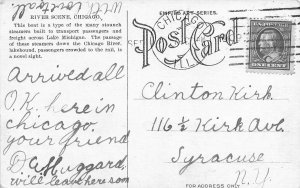 well located
RIVER SCENE, CHICAGO.
This boat is a type of the many staunch
steamers built to transport passengers and
freight across Lake Michigan. The passage
of these steamers down the Chicago River,
laidened, passengers crowded to the rail, is
a novel sight.
Arrived all
O.K. here in
chicago
your friend
D.C. Huggard,
will leave here som
EMPIRE ART SERIES.
Post Card
CHICAGO
ILL
SEP
ONE CENT
Clinton Kirk
116½ Kirk Ave.
Syracuse
N.Y.
FOR ADDRESS ONLY